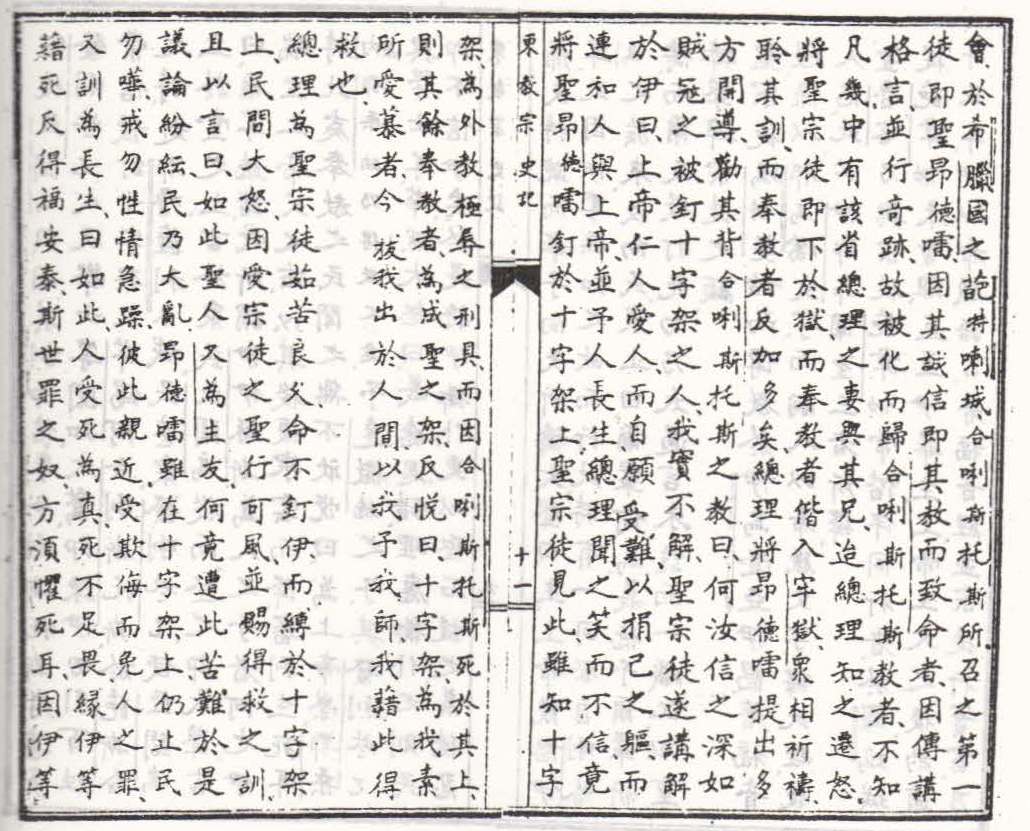 會於希臘國之葩特唎城、合唎斯托斯所召之第一
徒即聖昂德嚅、因其誠信即其教而致命者、因傳講
格言並行奇跡、故被化而歸合唎斯托斯教者、不知
凡幾、中有該省總理之妻與其兄、迨總理知之遷怒、
將聖宗徒即下於獄、而奉教者偕入牢獄、衆相祈禱、
聆其訓、而奉教者反加多矣、總理將昂德嚅提出多
方開導、勸其背合唎斯托斯之教、曰、何汝信之深如
賊冦之被釘十字架之人、我實不解、聖宗徒遂講解
於伊曰、上帝仁人愛人、而自願受難、以捐己之軀、而
連和人與上帝、並予人長生、總理聞之笑而不信、竟
將聖昂德嚅釘於十字架上、聖宗徒見此、雖知十字
東教宗史記
十一
架、為外教極辱之刑具、而因合唎斯托斯死於其上、
則其餘奉教者、為成聖之架、反悅曰、十字架、為我素
所愛慕者、今拔我出於人間、以我予我師、我藉此得
救也、
總理為聖宗徒茹苦良久、命不釘伊、而縛於十字架
上、民間大怒、因愛宗徒之聖行可風、並賜得救之訓、
且以言曰、如此聖人又為主友、何竟遭此苦難、於是
議論紛紜、民乃大亂、昂德嚅雖在十字架上、仍止民
勿嘩、戒勿性情急躁、彼此親近、受欺侮而免人之罪、
又訓為長生、曰如此、人受死、為真死不足畏、緣伊等
藉死反得福安泰、斯世罪之奴、方須懼死耳、因伊等